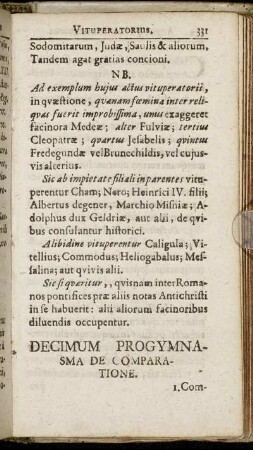 VITUPERATORIUS. 331
Sodomitarum, Judæ, Saulis & aliorum,
Tandem agat gratias concioni.
NB.
Ad exemplum hujus actus vituperatorii,
in quæstione, quanam fœmina inter reli-
quas fuerit improbissima, unus exaggeret
facinora Medeæ; alter Fulviæ; tertius
Cleopatræ; quartus Jesabelis; quintus
Fredegundæ vel Brunechildis, vel cujus-
vis alterius.
Sic ab impietate filiali in parentes vitu-
perentur Cham; Nero; Heinrici IV. filii;
Albertus degener, Marchio Misniæ; A-
dolphus dux Geldriæ, aut alii, de qvi-
bus consulantur historici.
A libidine vituperentur Caligula; Vi-
tellius; Commodus; Heliogabalus; Mes-
salina; aut qvivis alii.
Sic si quæritur, qvisnam inter Roma-
nos pontifices præ aliis notas Antichristi
in se habuerit: alii aliorum facinoribus
diluendis occupentur.
DECIMUM PROGYMNA-
SMA DE COMPARA-
TIONE.
1. Com-